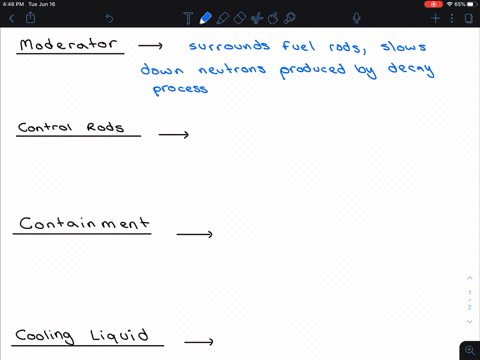 4:46 PM Tue Jun 16
65%
Moderator → surrounds fuel rods, slows
down neutrons produced by decay
process
Control Rods →
Containment →
Cooling Liquid →
1
/
2